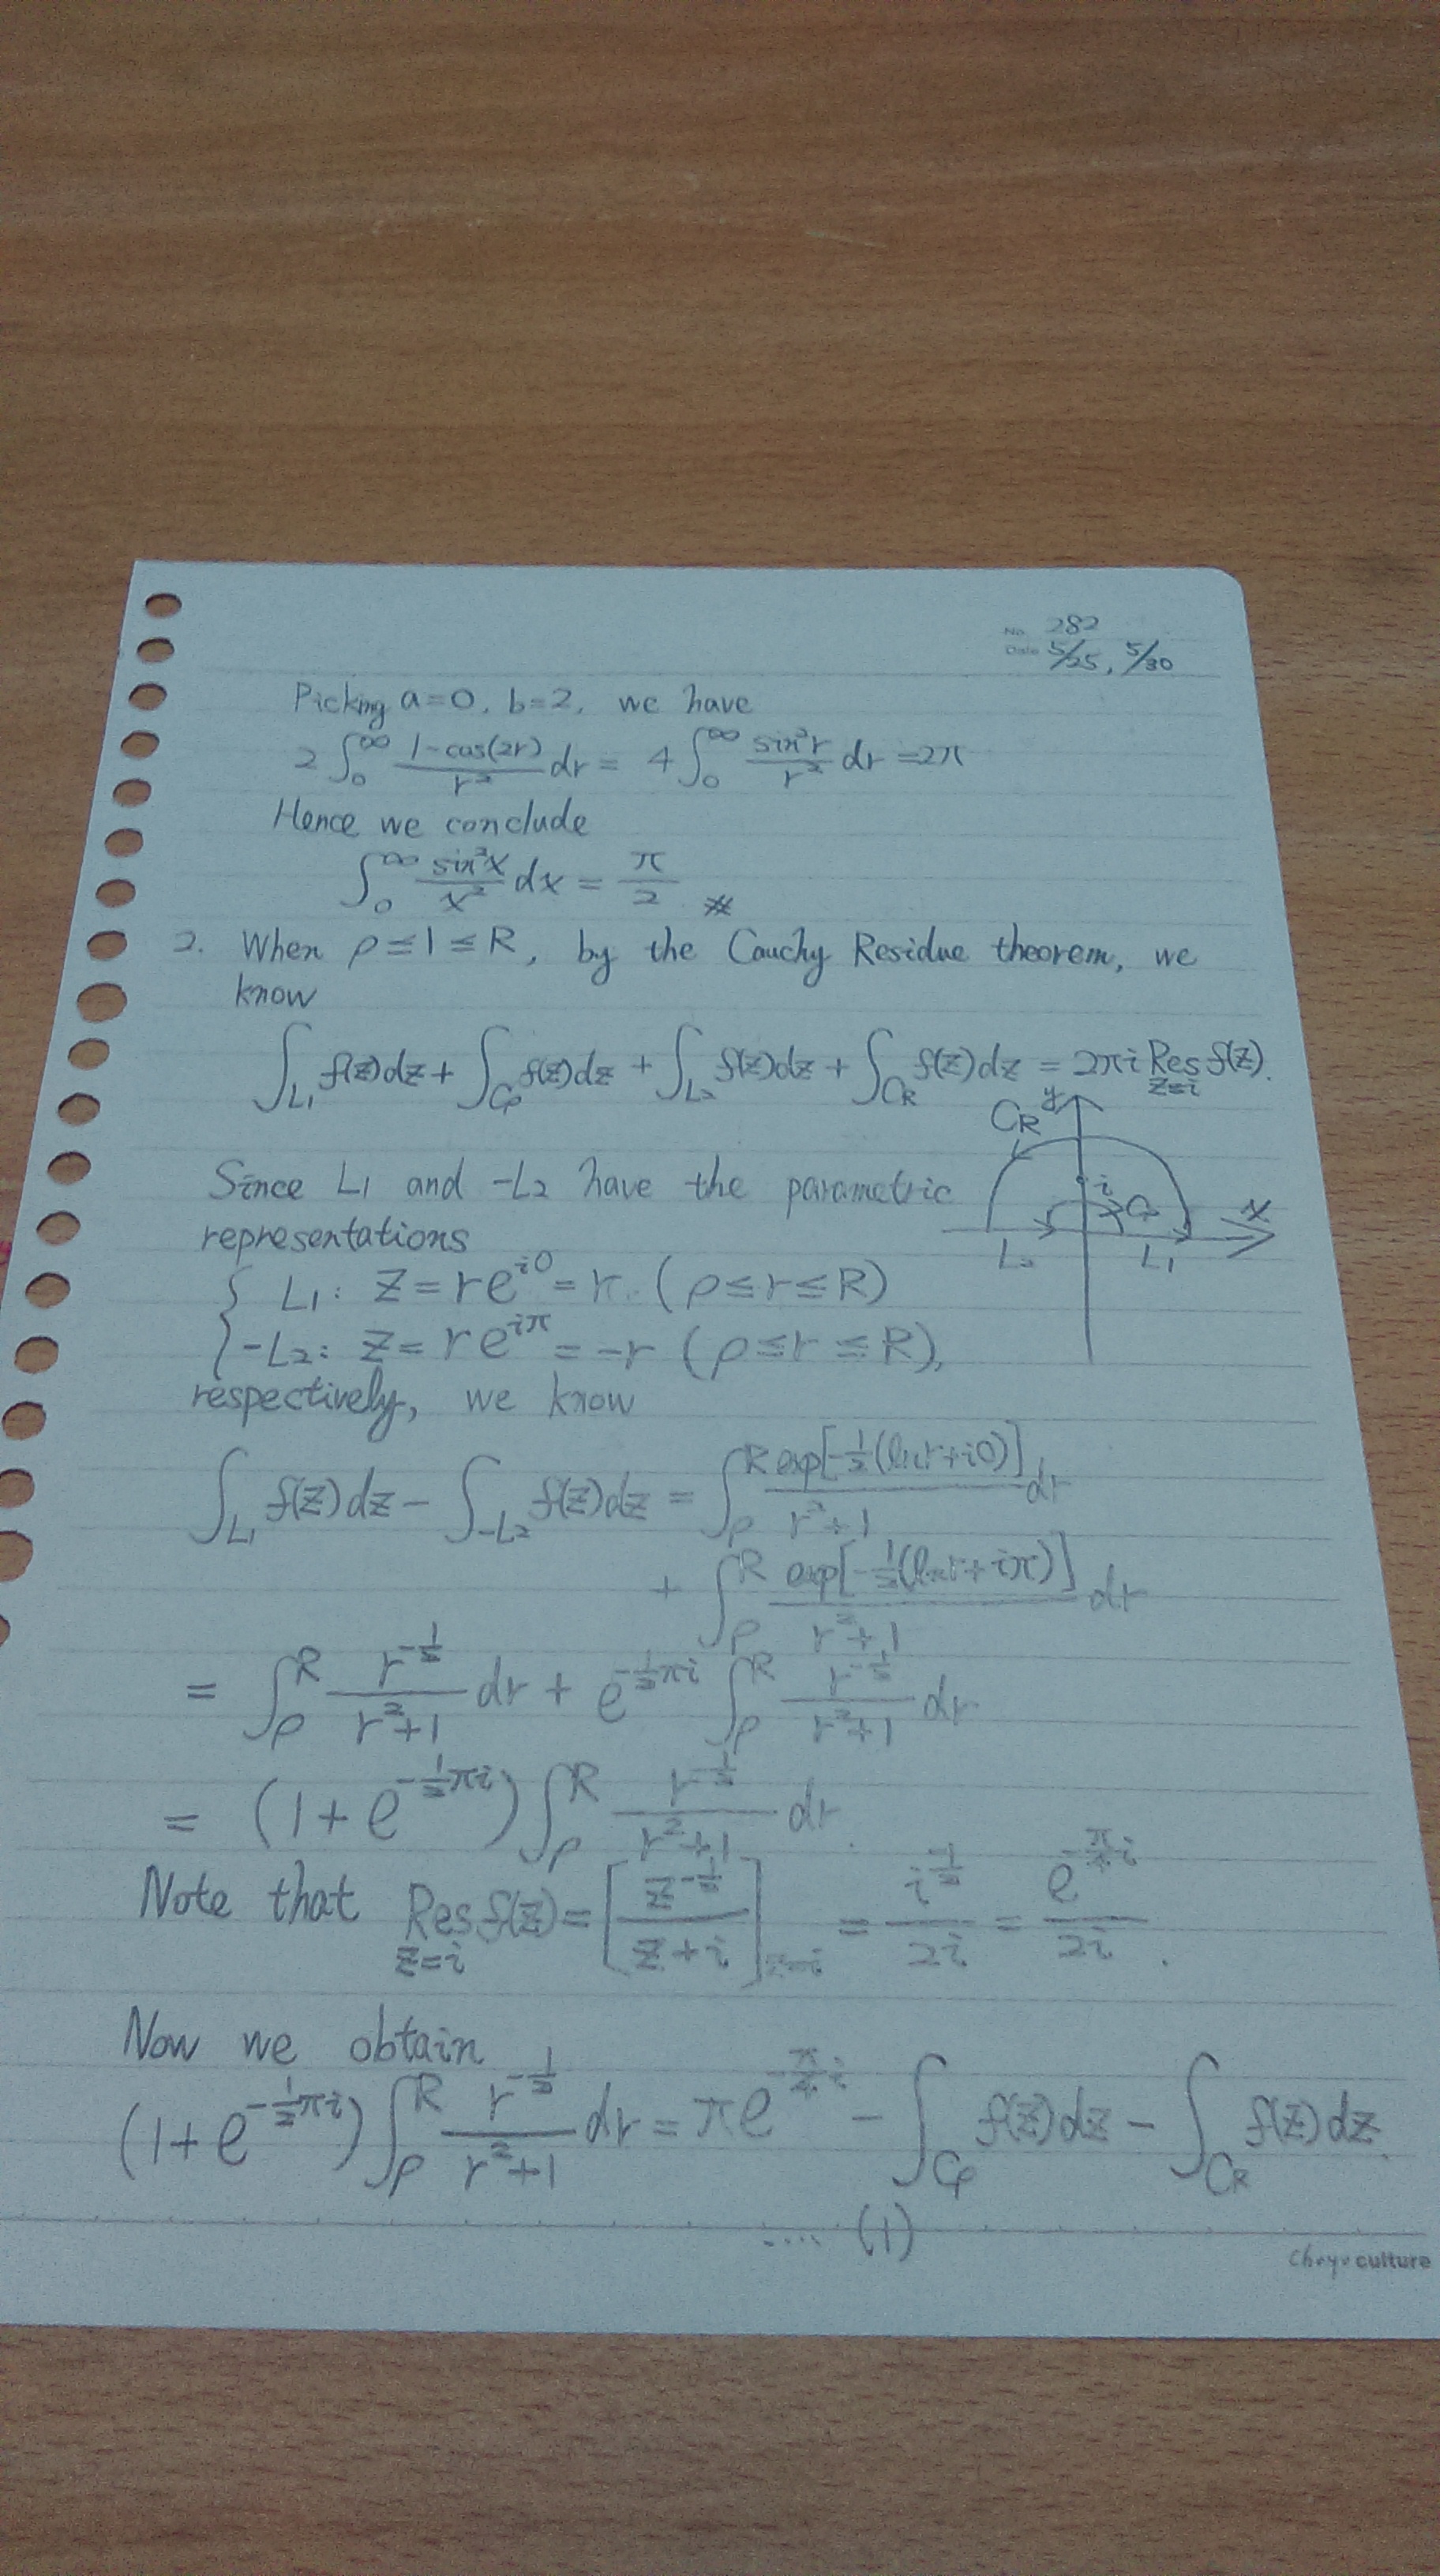 No. 282
Date 5/25, 5/30
Picking a=0, b=2, we have
2∫₀^∞ (1-cos(2r))/r² dr = 4∫₀^∞ sin²r/r² dr = 2π
Hence we conclude
∫₀^∞ sin²x/x² dx = π/2 #
2. When ρ ≤ 1 ≤ R, by the Cauchy Residue theorem, we
know
∫_{L1} f(z)dz + ∫_{Cρ} f(z)dz + ∫_{L2} f(z)dz + ∫_{CR} f(z)dz = 2πi Res_{z=i} f(z).
CR y
i Cρ x
L2 L1
Since L1 and -L2 have the parametric
representations
{ L1: z = re^{i0} = r. (ρ ≤ r ≤ R)
-L2: z = re^{iπ} = -r (ρ ≤ r ≤ R),
respectively, we know
∫_{L1} f(z)dz - ∫_{-L2} f(z)dz = ∫_ρ^R exp[-1/2(ln r+i0)]/(r²+1) dr
+ ∫_ρ^R exp[-1/2(ln r+iπ)]/(r²+1) dr
= ∫_ρ^R r^{-1/2}/(r²+1) dr + e^{-1/2πi} ∫_ρ^R r^{-1/2}/(r²+1) dr
= (1+e^{-1/2πi}) ∫_ρ^R r^{-1/2}/(r²+1) dr.
Note that Res_{z=i} f(z) = [z^{-1/2}/(z+i)]_{z=i} = i^{-1/2}/2i = e^{-π/4 i}/2i.
Now we obtain
(1+e^{-1/2πi}) ∫_ρ^R r^{-1/2}/(r²+1) dr = πe^{-π/4 i} - ∫_{Cρ} f(z)dz - ∫_{CR} f(z)dz.
.... (1)
culture